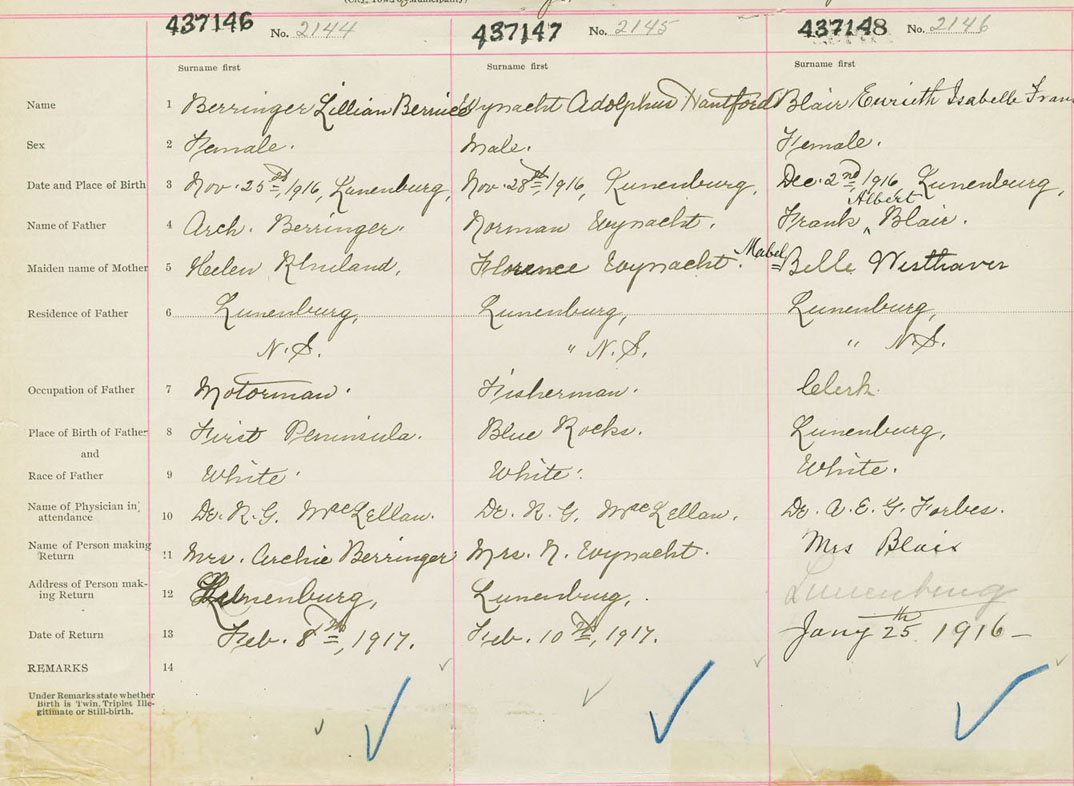 437146 No. 2144 437147 No. 2145 437148 No. 2146
Surname first Surname first Surname first
Name 1 Berringer Lillian Bernice Eynacht Adolphus Blair Isabelle Fran
Sex 2 Female. Male. Female.
Date and Place of Birth 3 Nov. 25th, 1916, Lunenburg, Nov. 28th, 1916, Lunenburg, Dec. 2nd, 1916, Lunenburg,
Albert
Name of Father 4 Arch. Berringer. Norman Eynacht. Frank ^ Blair.
Maiden name of Mother 5 Helen Rhuland, Florence Eynacht. Mabel Belle Westhaver
Residence of Father 6 Lunenburg, Lunenburg, Lunenburg,
N.S. " N.S. " N.S.
Occupation of Father 7 Motorman. Fisherman. Clerk.
Place of Birth of Father 8 First Peninsula. Blue Rocks. Lunenburg,
and
Race of Father 9 White. White. White.
Name of Physician in attendance 10 Dr. R. G. MacLellan. Dr. R. G. MacLellan. Dr. A. E. G. Forbes.
Name of Person making Return 11 Mrs. Archie Berringer Mrs. N. Eynacht. Mrs Blair
Address of Person making Return 12 Lunenburg, Lunenburg, Lunenburg
Date of Return 13 Feb. 8th, 1917. Feb. 10th, 1917. Jany 25th 1916 –
REMARKS 14
Under Remarks state whether
Birth is Twin, Triplet Ille-
gitimate or Still-birth.